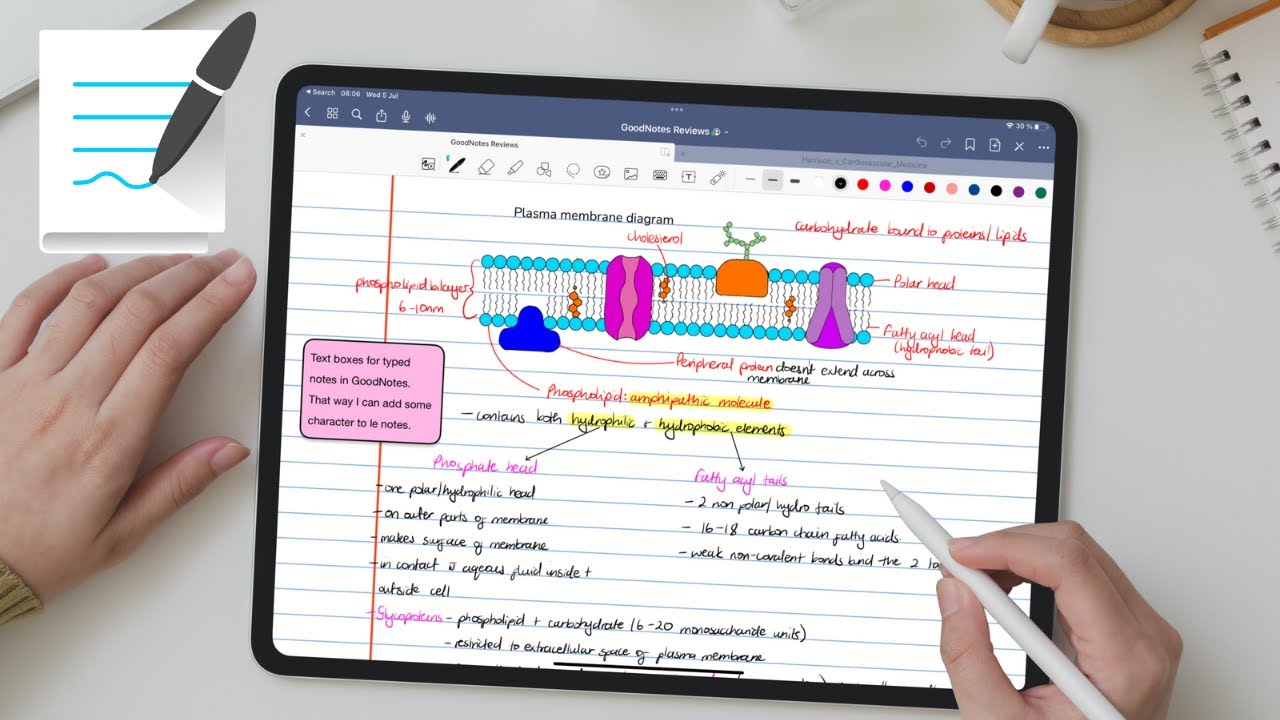 Search 08:06 Wed 5 Jul
30 %
GoodNotes Reviews
GoodNotes Reviews
Harrison_s_Cardiovascular_Medicine
Plasma membrane diagram
carbohydrate bound to proteins/lipids
cholesterol
phospholipid bilayer
6-10nm
Polar head
Fatty acyl head
(hydrophobic tail)
Peripheral protein doesn't extend across
membrane
Text boxes for typed
notes in GoodNotes.
That way I can add some
character to le notes.
Phospholipid: amphipathic molecule
- contains both hydrophilic + hydrophobic elements
Phosphate head
- one polar/hydrophilic head
- on outer parts of membrane
- makes surface of membrane
- in contact w aqeous fluid inside +
outside cell
Fatty acyl tails
- 2 non polar/hydro tails
- 16-18 carbon chain fatty acids
- weak non-covalent bonds bind the 2
- Glycoproteins - phospholipid + carbohydrate (6-20 monosaccharide units)
- restricted to extracellular space of plasma membrane